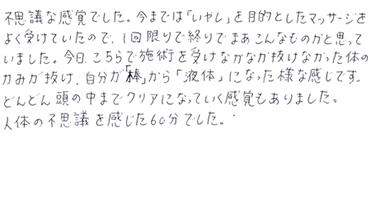 不思議な感覚でした。今までは「いやし」を目的としたマッサージを
よく受けていたので、1回限りで終りでまあこんなものかと思って
いました。今日、こちらで施術を受けなかなか抜けなかった体の
かみが抜け、自分が「棒」から「液体」になった様な感じです。
どんどん頭の中までクリアになっていく感覚もありました。
人体の不思議を感じた60分でした。